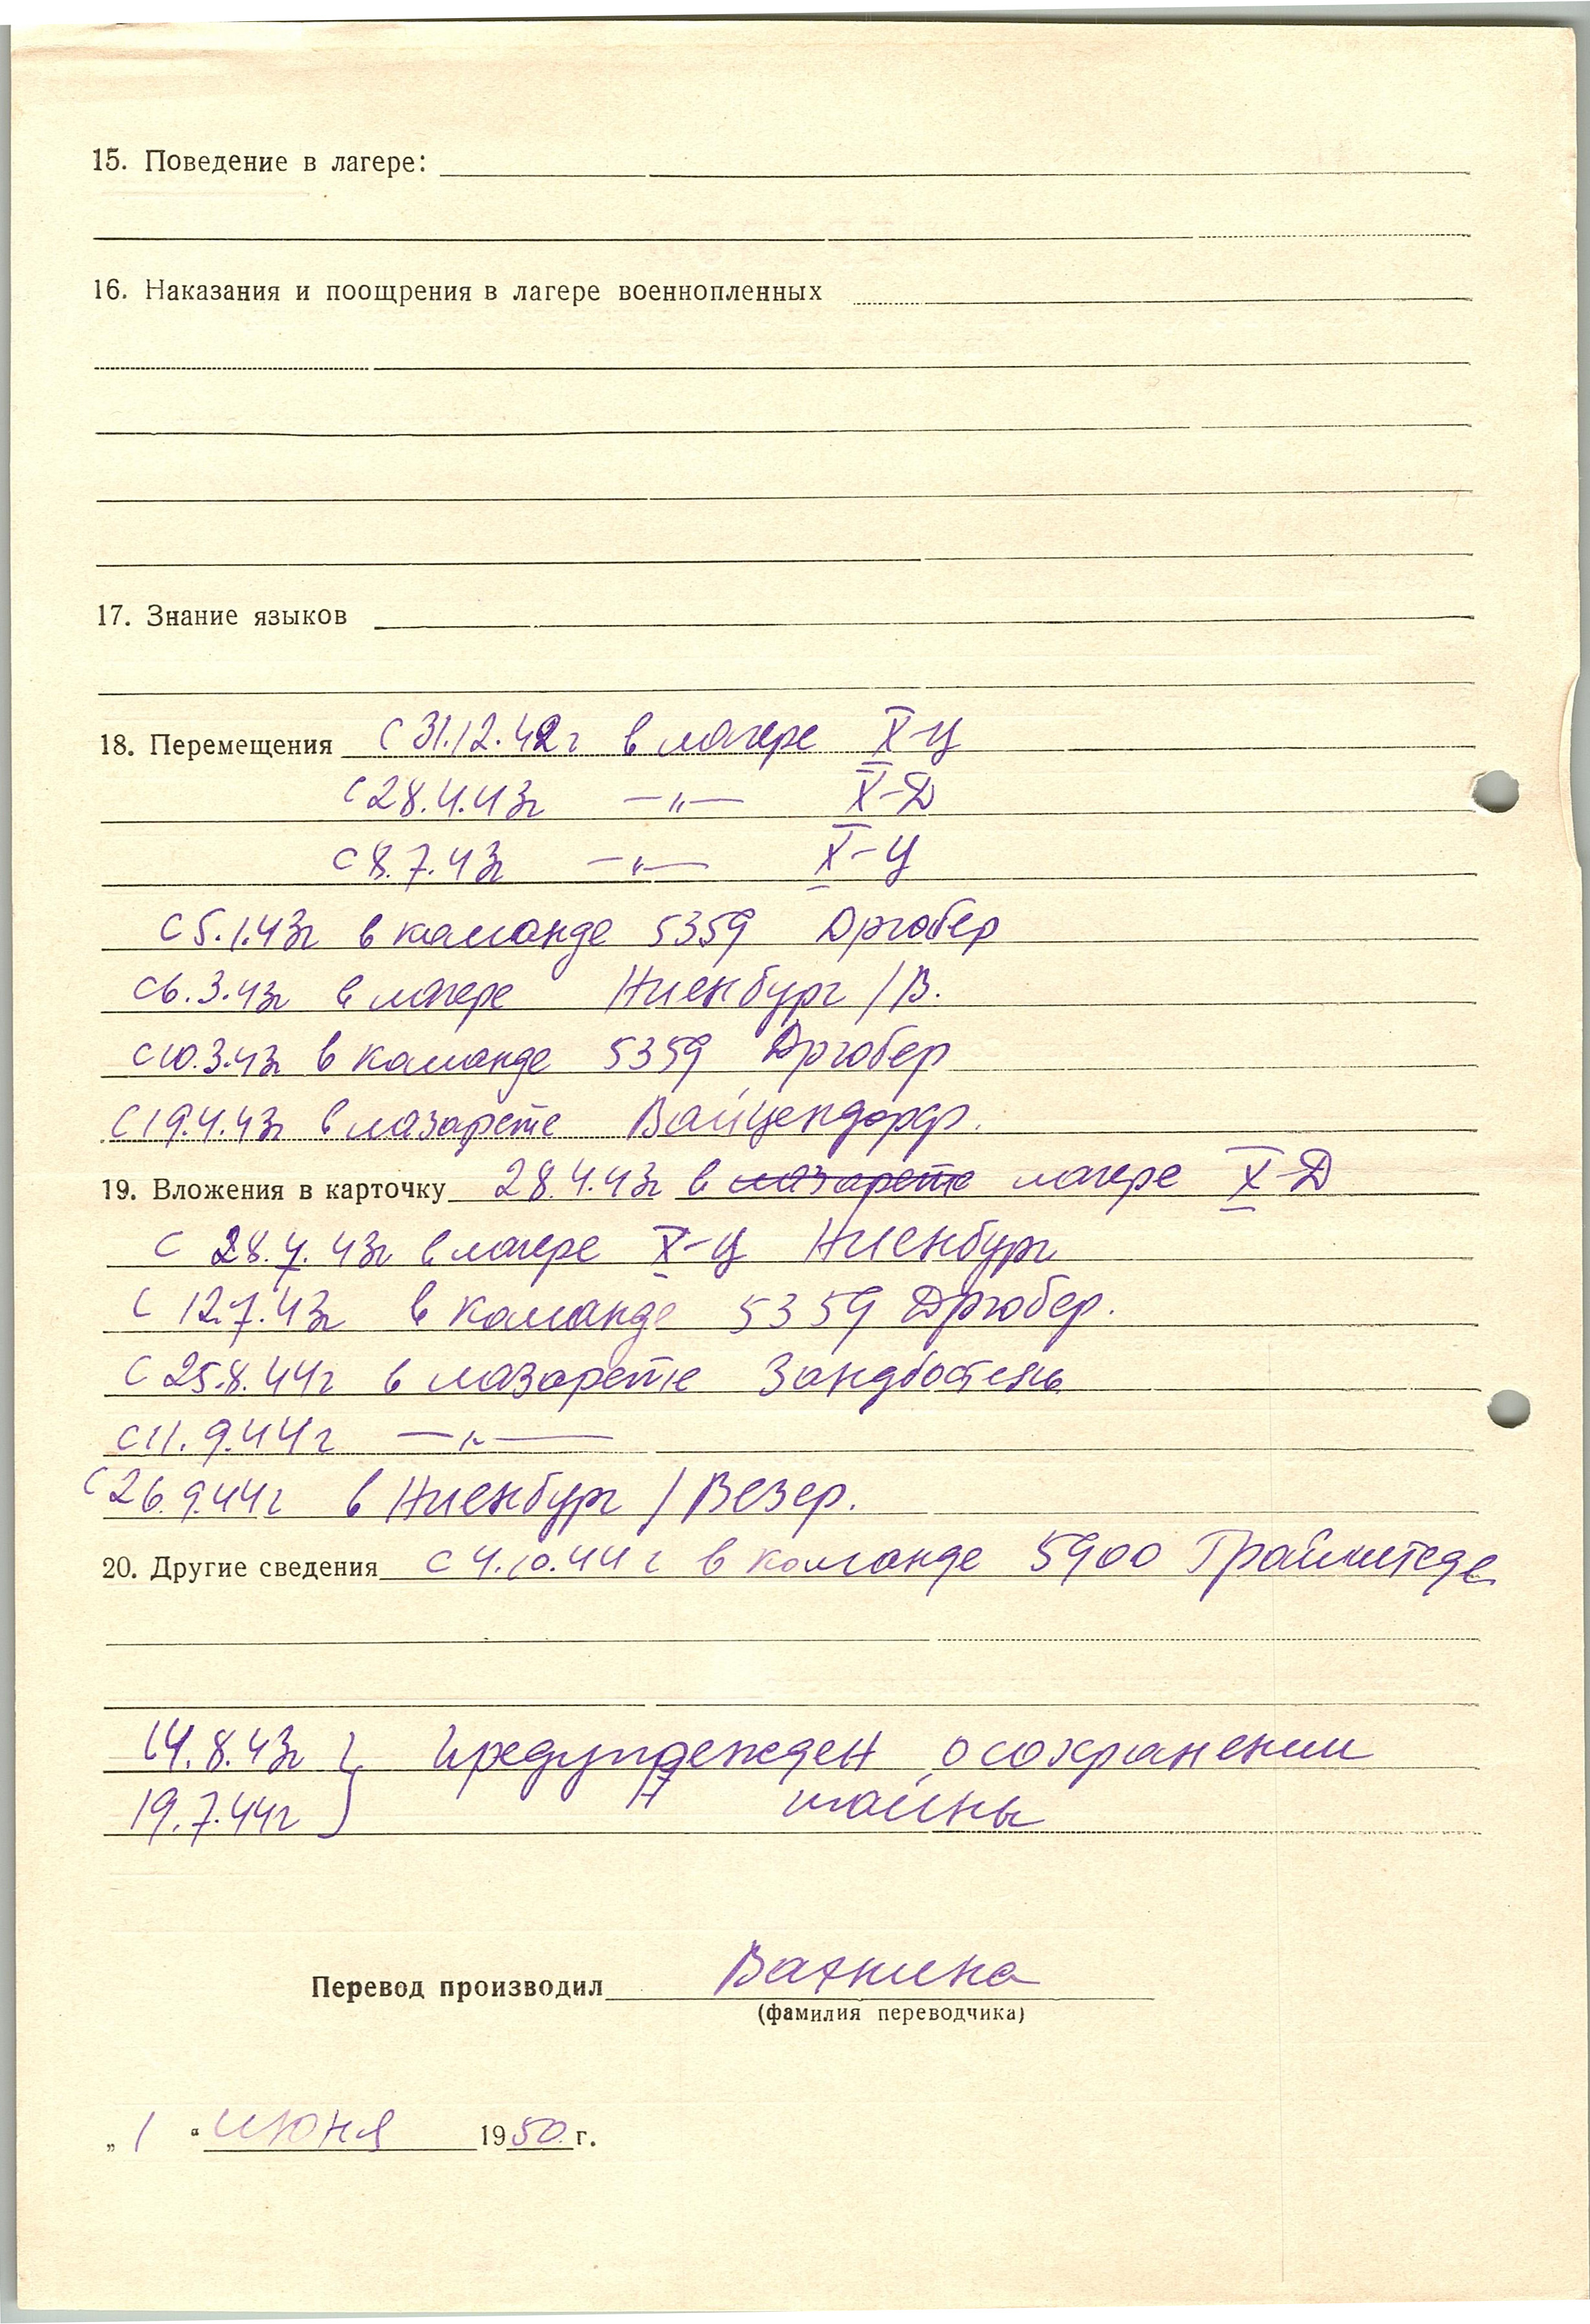 15. Поведение в лагере:
16. Наказания и поощрения в лагере военнопленных
17. Знание языков
18. Перемещения с 31.12.42г в лагере X-Ц
с 28.4.43г —"— X-Д
с 8.7.43г —"— X-Ц
с 5.1.43г в команде 5359 Дрюбер
с 6.3.43г в лагере Ниенбург /В.
с 10.3.43г в команде 5359 Дрюбер
с 19.4.43г в лазарете Вайцендорф.
19. Вложения в карточку 28.4.43г в лазарете лагере X-Д
с 28.4.43г в лагере X-Ц Ниенбург
с 12.7.43г в команде 5359 Дрюбер.
с 25.8.44г в лазарете Зандбостель
с 11.9.44г —"—
с 26.9.44г в Ниенбург / Везер.
20. Другие сведения с 4.10.44г в команде 5900
14.8.43г } Предупрежден о сохранении
19.7.44г } тайны
Перевод производил
(фамилия переводчика)
„ 1 “ июня 1950 г.